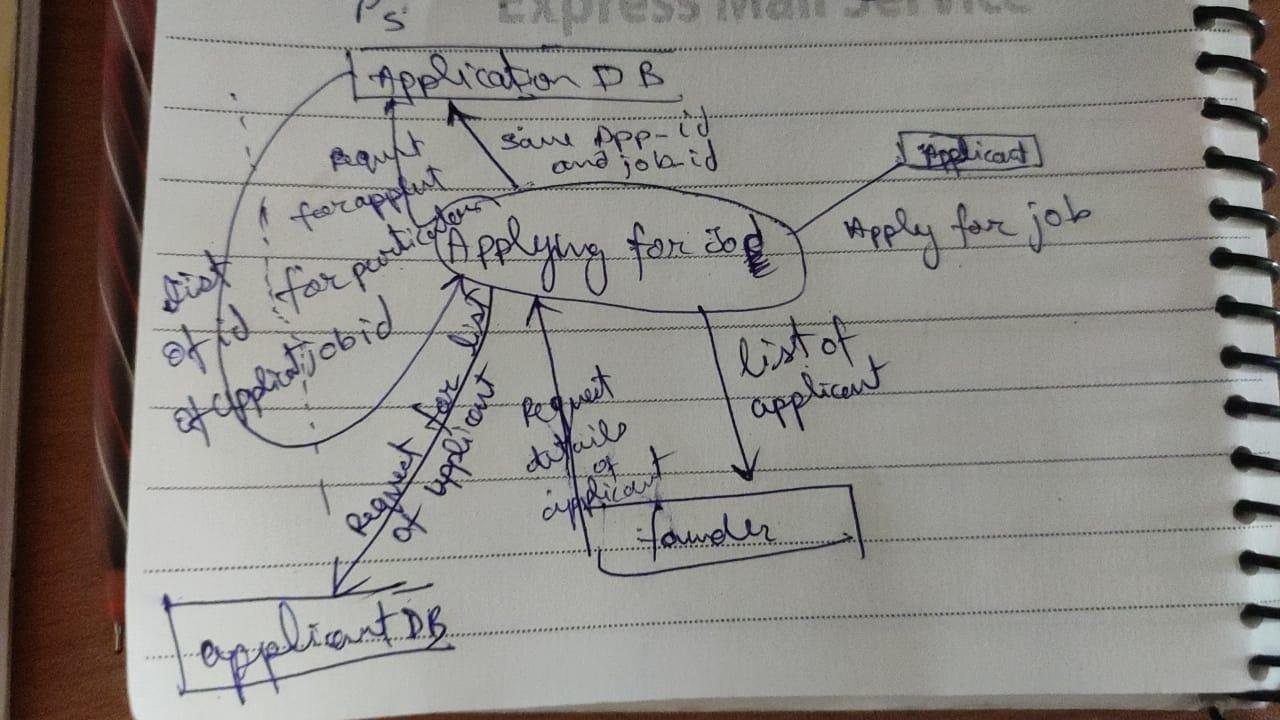 Express Mail Service
Ps
Application DB
Save App-id
and job id
Request
for applent
for particular
job id
Applicant
Apply for job
Applying for Job
List
of id
of applicant
Request for list
of applicant
Request
details
of
applicant
list of
applicant
founder
applicant DB